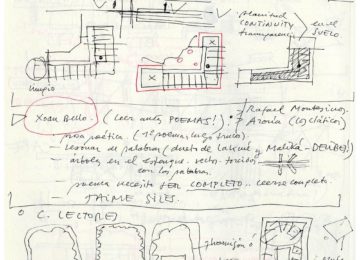 planitud
CONTINUITY
transparencia
en el
SUELO
limpio
Xoan Bello. (Leer antes POEMAS!)
• Rafael Montesinos.
• Azorín (Los clásicos)
— prosa poética. (1º poema, luego
— resonar de palabras (dueto de Lakmé y Malika - DELIBES!)
— árboles en el estanque. vectos. torcidos
con las palabras.
— poema necesita SER COMPLETO.. leerse completo.
— JAIME SILES.
C. LECTORES